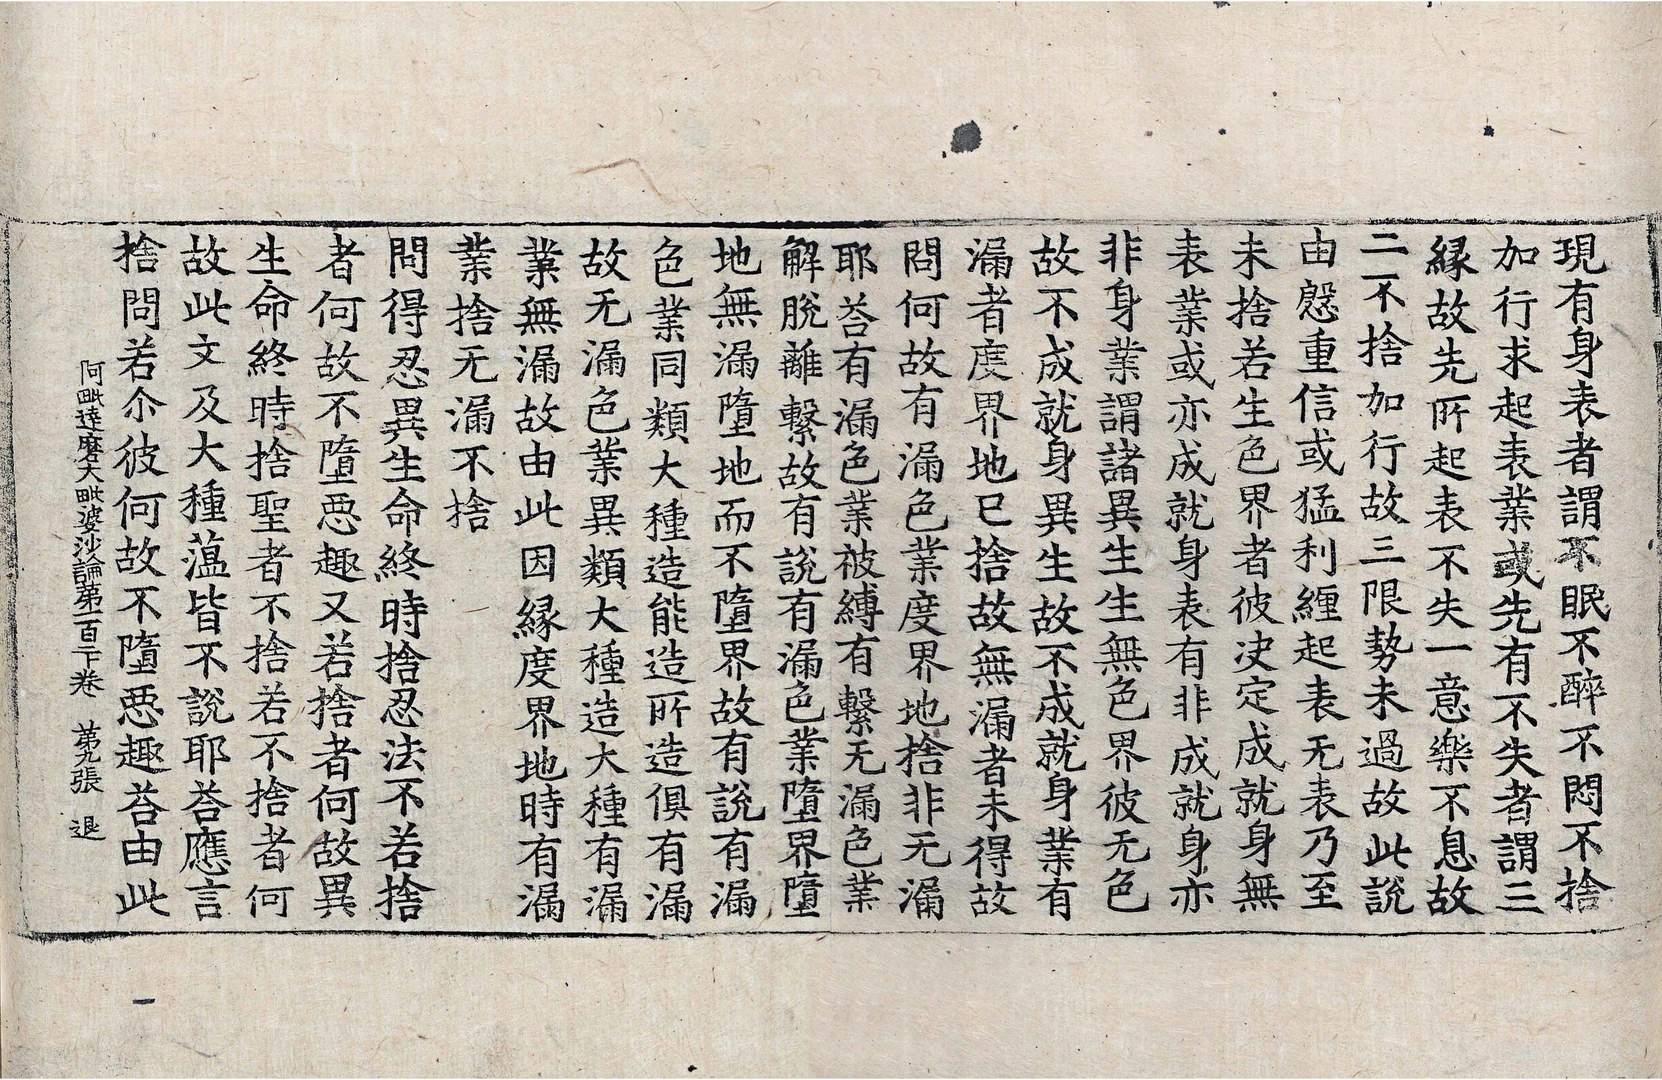 現有身表者謂不眠不醉不悶不捨
加行求起表業或先有不失者謂三
縁故先所起表不失一意樂不息故
二不捨加行故三限勢未過故此說
由慇重信或猛利纏起表无表乃至
未捨若生色界者彼決定成就身無
表業或亦成就身表有非成就身亦
非身業謂諸異生生無色界彼无色
故不成就身異生故不成就身業有
漏者度界地已捨故無漏者未得故
問何故有漏色業度界地捨非无漏
耶荅有漏色業被縛有繫无漏色業
解脫離繫故有說有漏色業墮界墮
地無漏墮地而不墮界故有說有漏
色業同類大種造能造所造俱有漏
故无漏色業異類大種造大種有漏
業無漏故由此因縁度界地時有漏
業捨无漏不捨
問得忍異生命終時捨忍法不若捨
者何故不墮惡趣又若捨者何故異
生命終時捨聖者不捨若不捨者何
故此文及大種蕰皆不說耶荅應言
捨問若尒彼何故不墮惡趣荅由此
阿毗達磨大毗婆沙論第一百二十卷 第九張 退